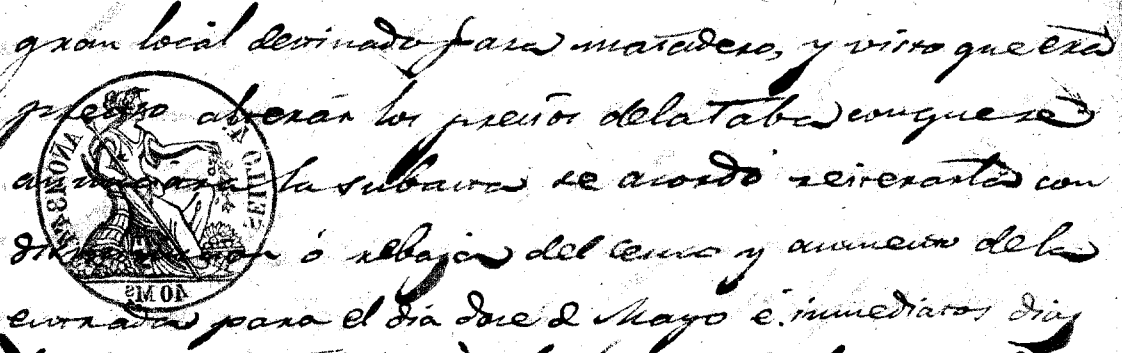 gran local destinado para matadero, y visto que era
preciso alterar los precios de la Taba con que se
anunciara la subasta se acordó reiterarla con
disminucion ó rebaja del censo y aumento de la
entrada para el dia doce d Mayo é inmediatos dias